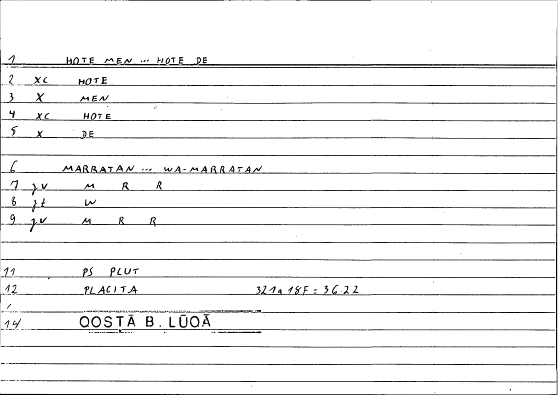 1 HOTE MEN ... HOTE DE
2 XC HOTE
3 X MEN
4 XC HOTE
5 X DE
6 MARRATAN ... WA-MARRATAN
7 gv M R R
8 gt W
9 gv M R R
11 PS PLUT
12 PLACITA 321a 18F = 36.22
14 QOSTĀ B. LŪQĀ